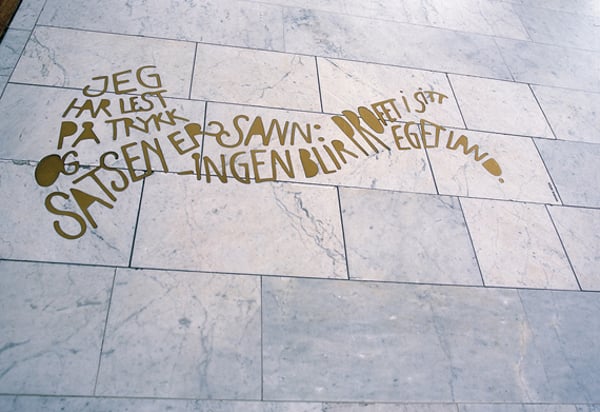 JEG
HAR LEST
PÅ TRYKK
OG
SATSEN ER SANN:
-INGEN BLIR PROFET I SITT
EGET LAND.